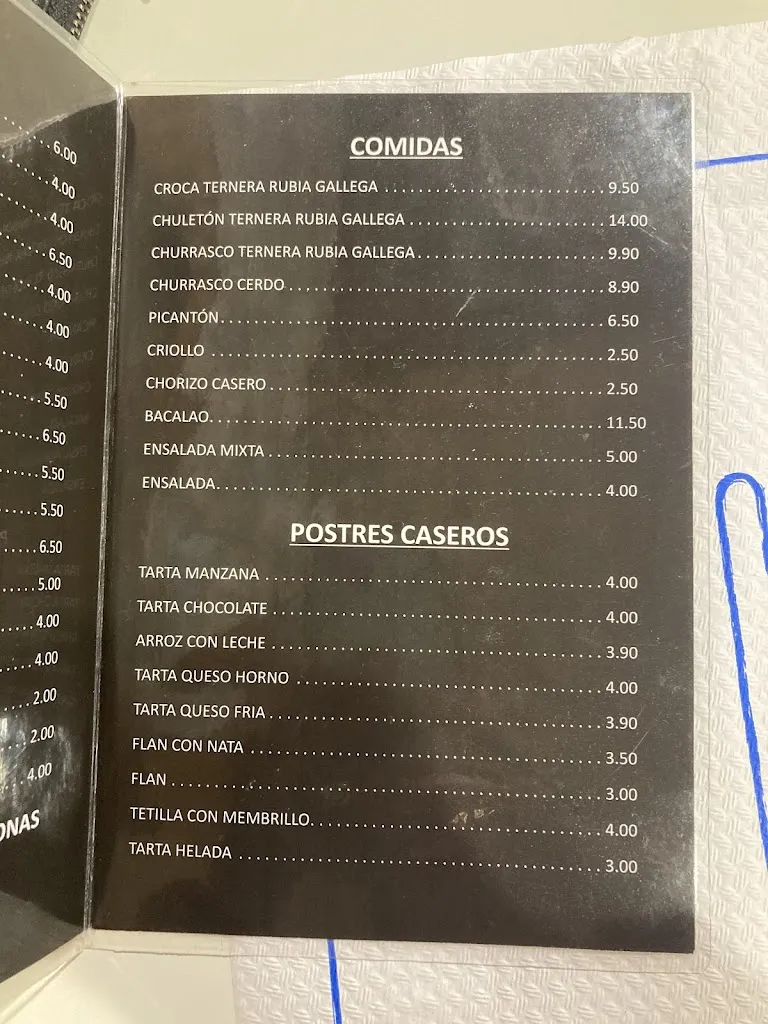 6.00
4.00
4.00
6.50
4.00
4.00
4.00
5.50
6.50
5.50
5.50
6.50
5.00
4.00
4.00
2.00
2.00
4.00
ONAS
COMIDAS
CROCA TERNERA RUBIA GALLEGA 9.50
CHULETÓN TERNERA RUBIA GALLEGA 14.00
CHURRASCO TERNERA RUBIA GALLEGA 9.90
CHURRASCO CERDO 8.90
PICANTÓN 6.50
CRIOLLO 2.50
CHORIZO CASERO 2.50
BACALAO 11.50
ENSALADA MIXTA 5.00
ENSALADA 4.00
POSTRES CASEROS
TARTA MANZANA 4.00
TARTA CHOCOLATE 4.00
ARROZ CON LECHE 3.90
TARTA QUESO HORNO 4.00
TARTA QUESO FRIA 3.90
FLAN CON NATA 3.50
FLAN 3.00
TETILLA CON MEMBRILLO 4.00
TARTA HELADA 3.00